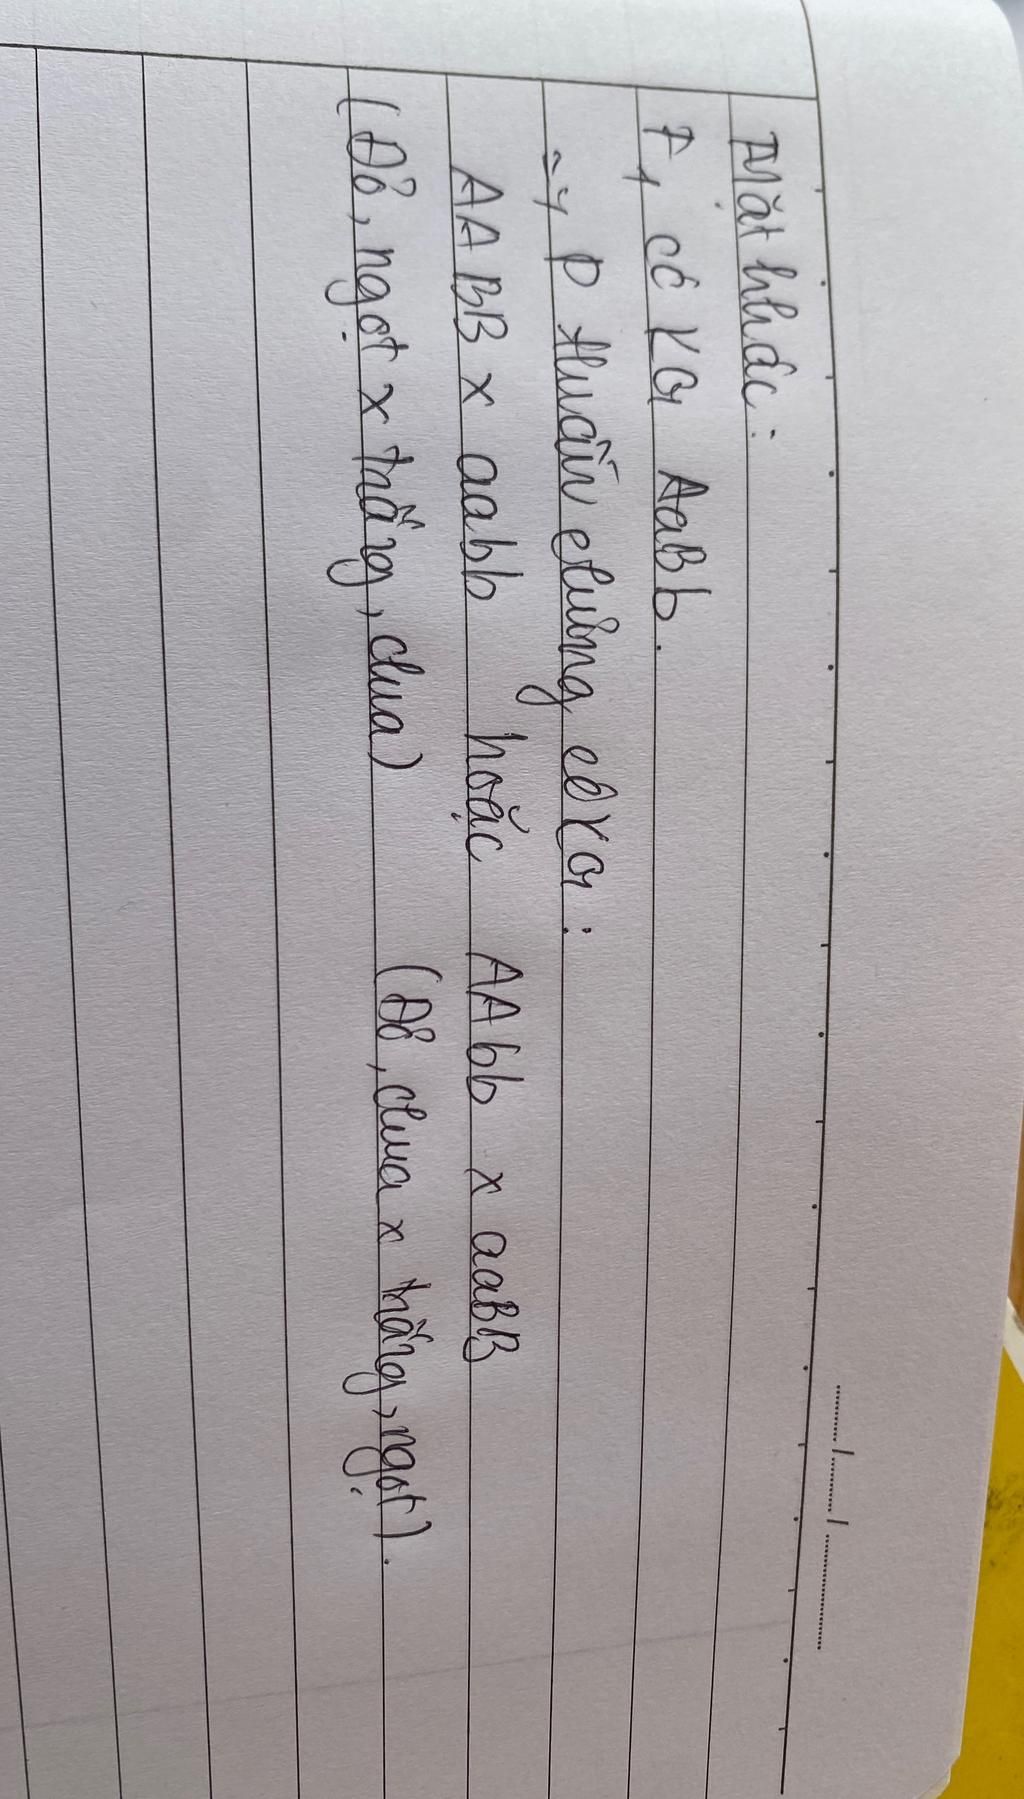 Mặt khác:
F1 có KG AaBb.
=> P thuần chủng có KG:
AABB x aabb hoặc AAbb x aaBB
(Đỏ, ngọt x trắng, chua) (Đỏ, chua x trắng, ngọt).